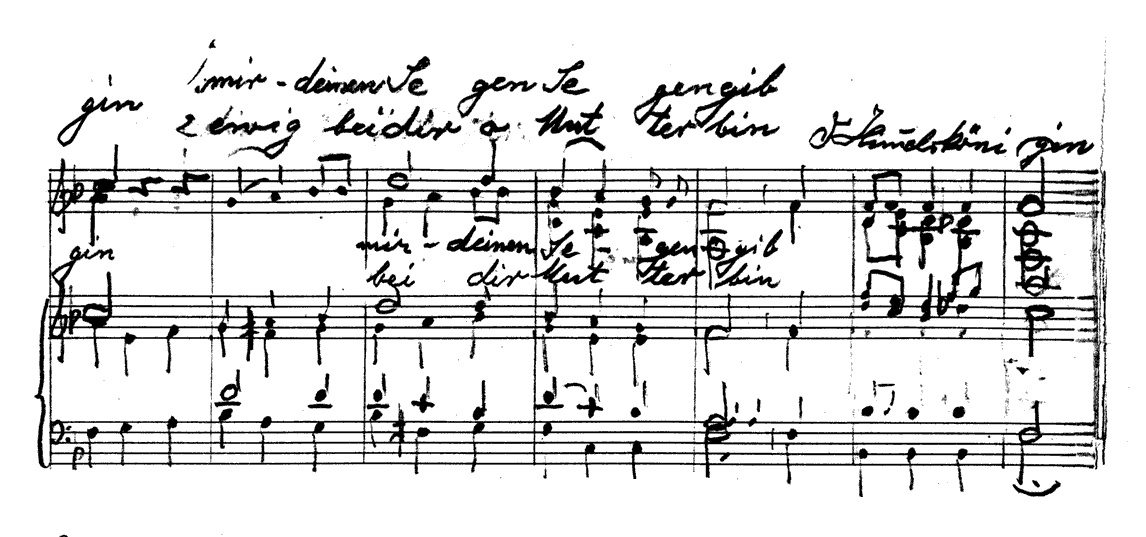 1. mir - deinen Se gen Se gen gib
gin
2 ewig bei dir o Mut ter bin
gin
gin mir - deinen Se gen gib
bei dir Mut ter bin